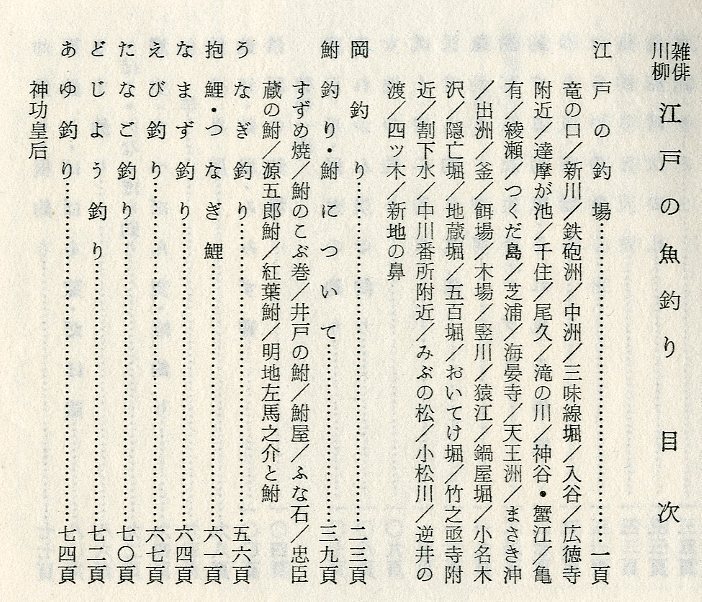 雑俳
川柳 江戸の魚釣り 目次
江戸の釣場……………一頁
竜の口／新川／鉄砲洲／中洲／三味線堀／入谷／広徳寺
附近／達摩が池／千住／尾久／滝の川／神谷・蟹江／亀
有／綾瀬／つくだ島／芝浦／海晏寺／天王洲／まさき沖
／出洲／釜／餌場／木場／竪川／猿江／鍋屋堀／小名木
沢／隠亡堀／地蔵堀／五百堀／おいてけ堀／竹之亟寺附
近／割下水／中川番所附近／みぶの松／小松川／逆井の
渡／四ッ木／新地の鼻
岡釣り……………二三頁
鮒釣り・鮒について……………三九頁
すずめ焼／鮒のこぶ巻／井戸の鮒／鮒屋／ふな石／忠臣
蔵の鮒／源五郎鮒／紅葉鮒／明地左馬之介と鮒
うなぎ釣り……………五六頁
抱鯉・つなぎ鯉……………六一頁
なまず釣り……………六四頁
えび釣り……………六七頁
たなご釣り……………七〇頁
どじょう釣り……………七二頁
あゆ釣り……………七四頁
神功皇后